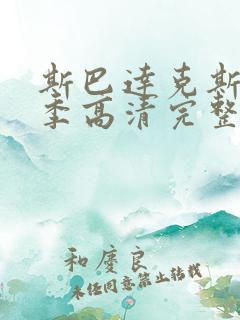 斯巴达克斯
季高清完整
和庆良
未经同意禁止转载